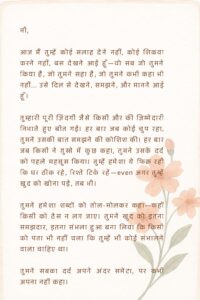 माँ,
आज मैं तुम्हें कोई सलाह देने नहीं, कोई शिकवा
करने नहीं, बस देखने आई हूँ—वो सब जो तुमने
किया है, जो तुमने सहा है, जो तुमने कभी कहा भी
नहीं... उसे दिल से देखने, समझने, और मानने आई
हूँ।
तुम्हारी पूरी ज़िंदगी जैसे किसी और की ज़िम्मेदारी
निभाते हुए बीत गई। हर बार जब कोई चुप रहा,
तुमने उसकी बात समझने की कोशिश की। हर बार
जब किसी ने गुस्से में कुछ कहा, तुमने उसके दर्द
को पहले महसूस किया। तुम्हें हमेशा ये फिक्र रही
कि घर ठीक रहे, रिश्ते टिके रहें—even अगर तुम्हें
खुद को खोना पड़े, तब भी।
तुमने हमेशा शब्दों को तोल-मोलकर कहा—कहीं
किसी को ठेस न लग जाए। तुमने खुद को इतना
समझदार, इतना संभला हुआ बना लिया कि किसी
को पता भी नहीं चला कि तुम्हें भी कोई संभालने
वाला चाहिए था।
तुमने सबका दर्द अपने अंदर समेटा, पर कभी
अपना नहीं कहा।